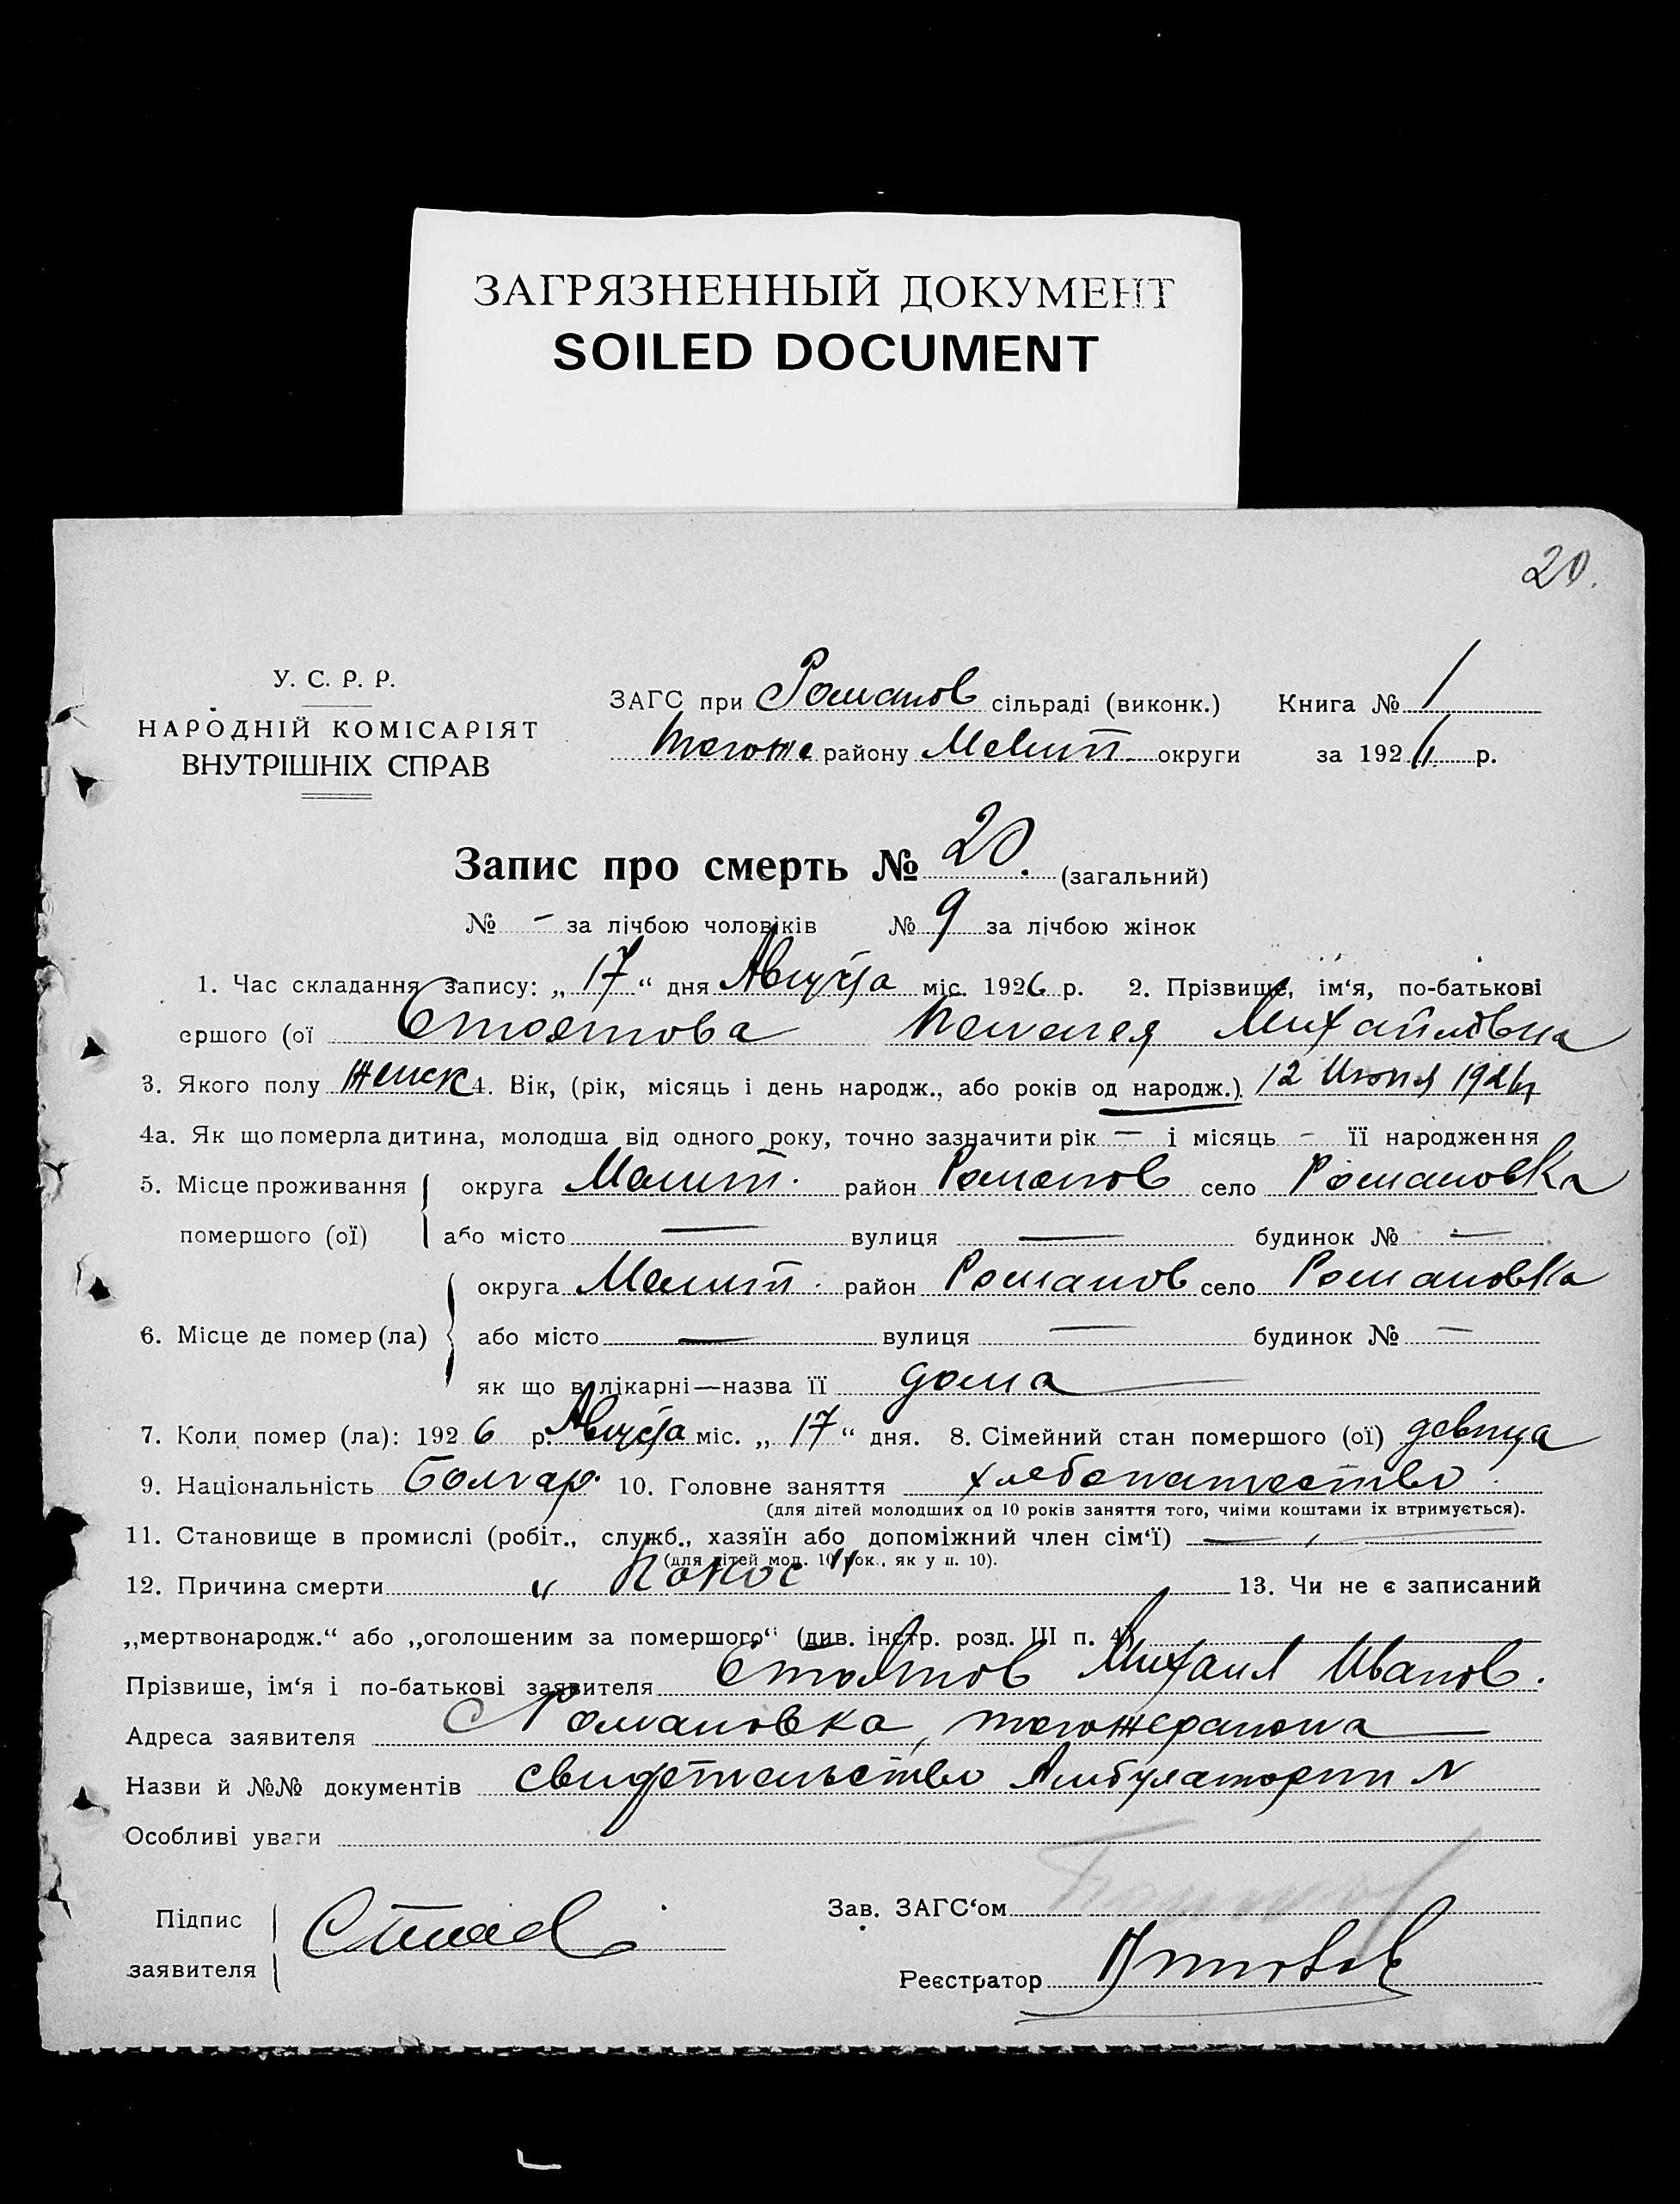 ЗАГРЯЗНЕННЫЙ ДОКУМЕНТ
SOILED DOCUMENT
20.
У. С. Р. Р.
НАРОДНІЙ КОМІСАРІЯТ
ВНУТРІШНІХ СПРАВ
ЗАГС при Романов сільраді (виконк.) Книга № 1
тогоже району Мелит. округи за 1926 р.
Запис про смерть № 20. (загальний)
№ — за лічбою чоловіків № 9 за лічбою жінок
1. Час складання запису: „17“ дня Августа міс. 1926 р. 2. Прізвище, ім‘я, по-батькові
ершого (ої Стоянова Пелагея Михайловна
3. Якого полу женск 4. Вік, (рік, місяць і день народж., або років од народж.) 12 Июня 1926
4а. Як що померла дитина, молодша від одного року, точно зазначити рік — і місяць — її народження
5. Місце проживання округа Мелит. район Романов село Романовка
помершого (ої) або місто — вулиця — будинок № —
округа Мелит. район Романов село Романовка
6. Місце де помер (ла) або місто — вулиця — будинок № —
як що в лікарні—назва її дома
7. Коли помер (ла): 1926 р. Августа міс. „17“ дня. 8. Сімейний стан помершого (ої) девица
9. Національність Болгар. 10. Головне заняття хлебопашество.
(для дітей молодших од 10 років заняття того, чиїми коштами їх втримується).
11. Становище в промислі (робіт., служб., хазяїн або допоміжний член сім‘ї) —
(для дітей мол. 10 рок., як у п. 10).
12. Причина смерти „Понос“ 13. Чи не є записаний
„мертвонародж.“ або „оголошеним за помершого“ (див. інстр. розд. III п. 4)
Прізвище, ім‘я і по-батькові заявителя Стоянов Михаил Иванов.
Адреса заявителя с Романовка, тогожерайона
Назви й №№ документів свидетельство Амбулатории N
Особливі уваги
Підпис
заявителя
Зав. ЗАГС‘ом
Реєстратор